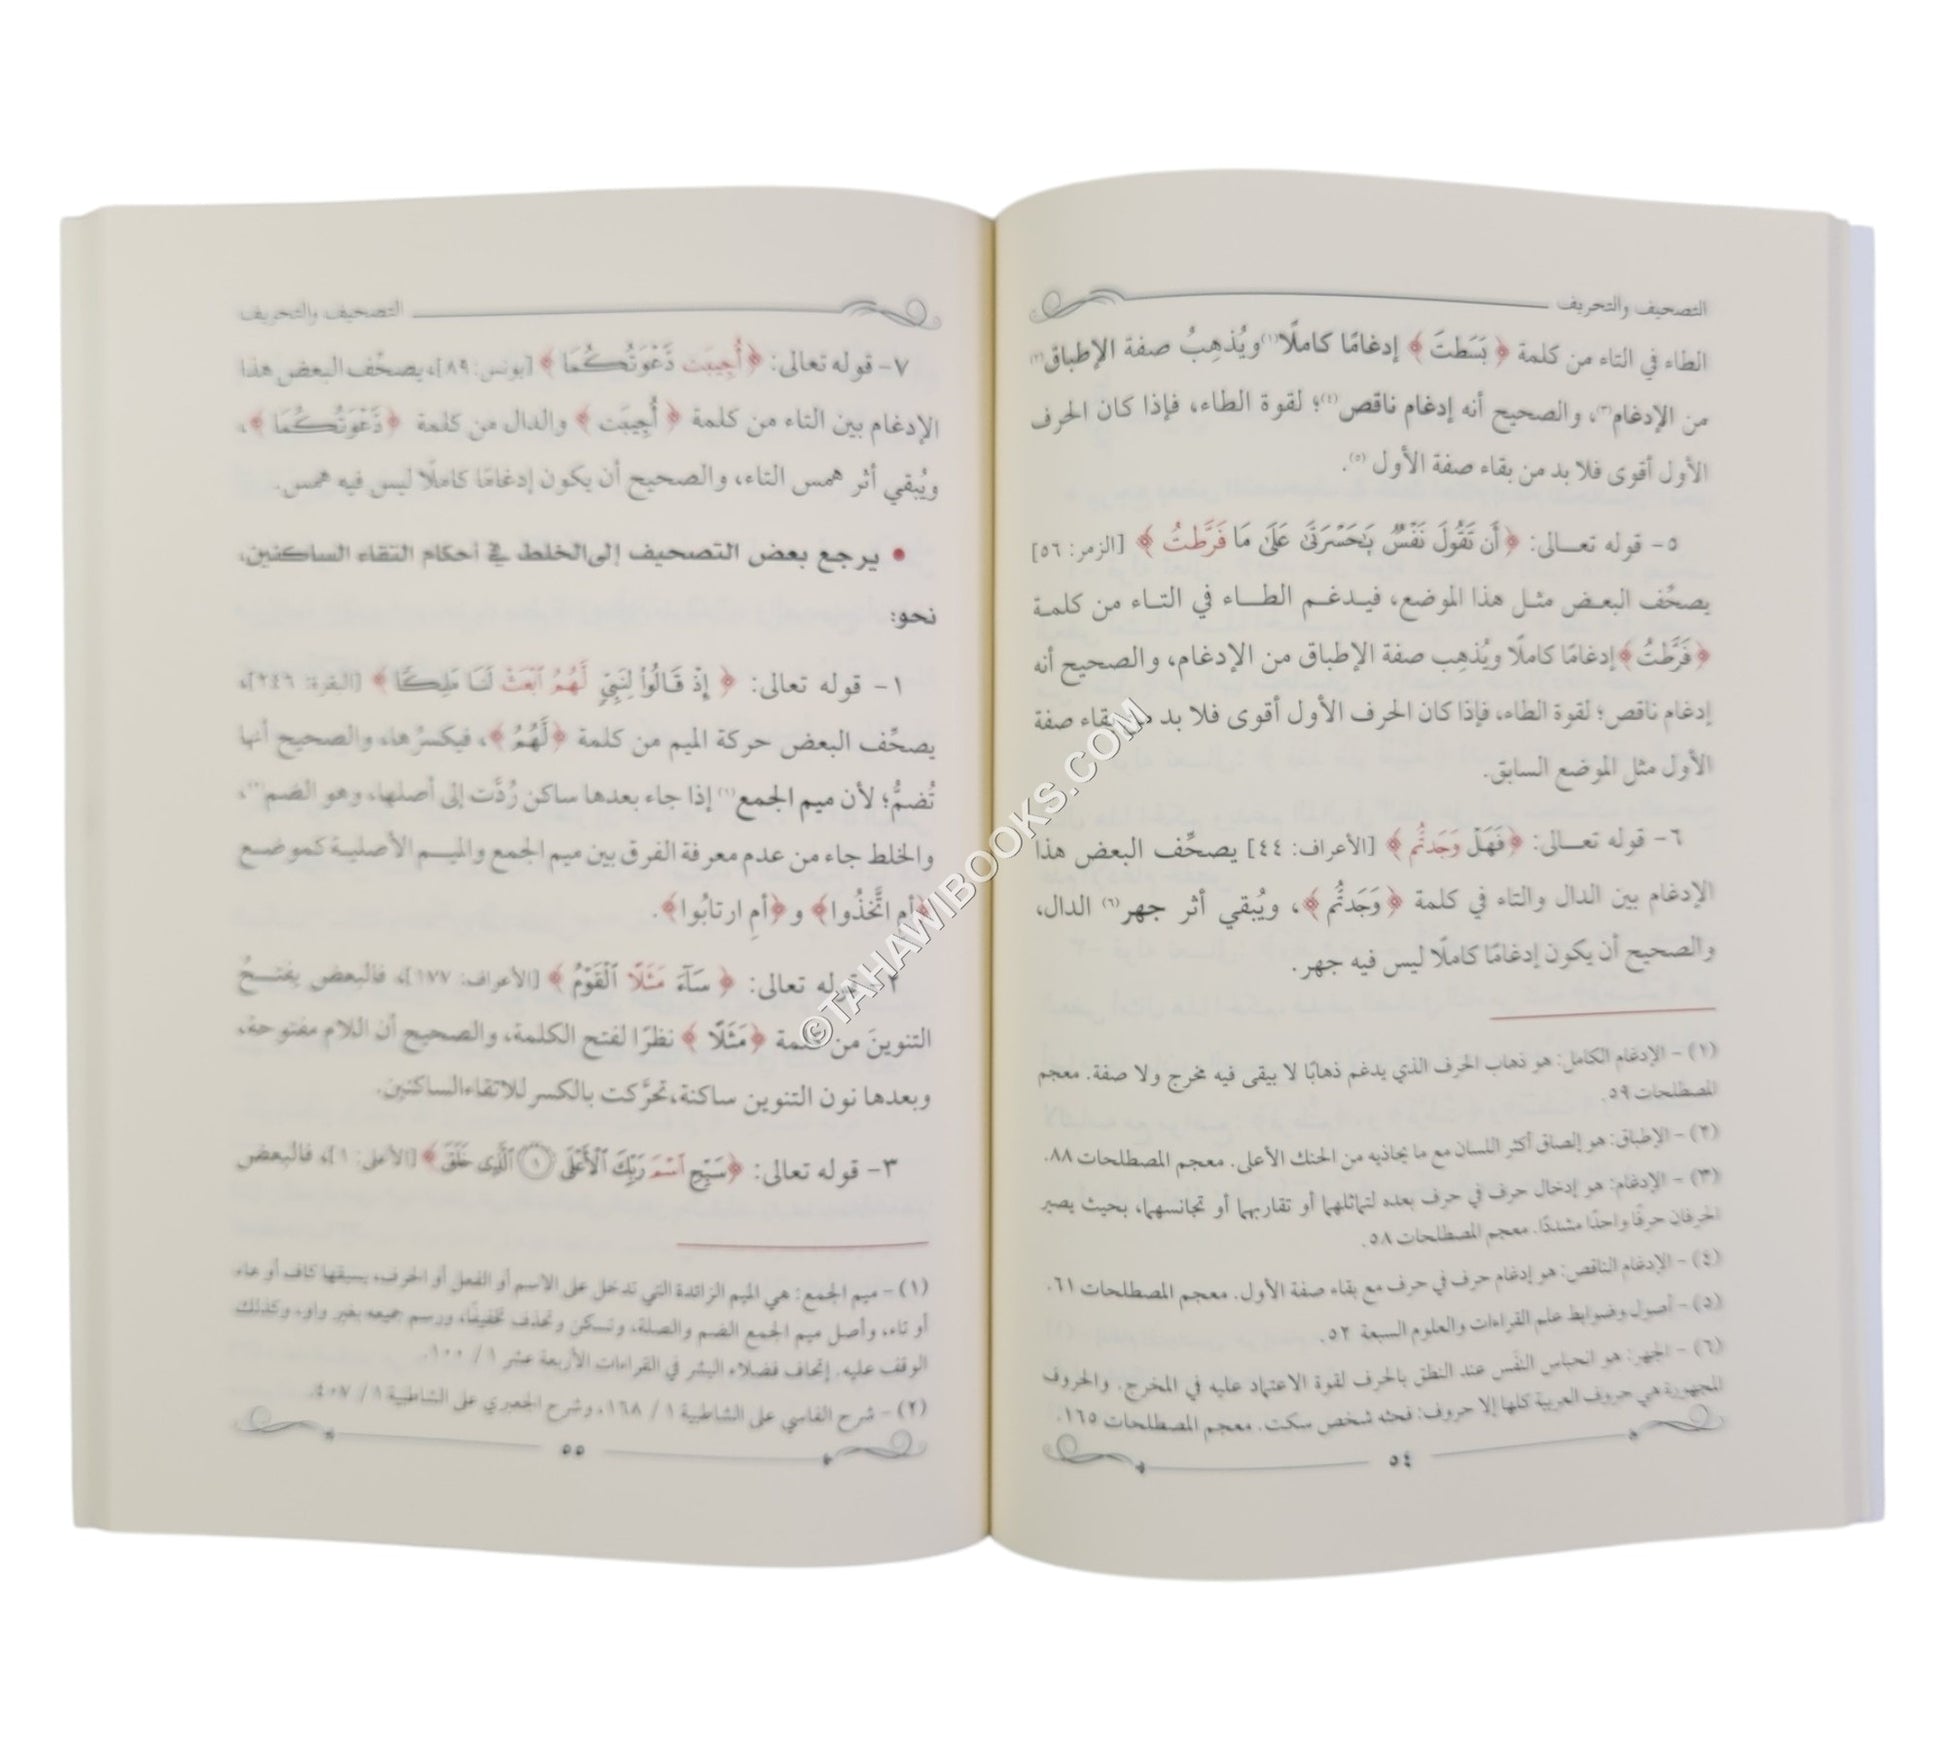 التصحيف والتحريف
الطاء في التاء من كلمة ﴿ بَسَطتَ ﴾ إدغامًا كاملًا(١) ويُذهِبُ صفة الإطباق(٢)
من الإدغام(٣)، والصحيح أنه إدغام ناقص(٤)؛ لقوة الطاء، فإذا كان الحرف
الأول أقوى فلا بد من بقاء صفة الأول (٥).
٥- قوله تعـــالى: ﴿أَن تَقُولَ نَفْسٌ يَٰحَسْرَتَىٰ عَلَىٰ مَا فَرَّطتُ ﴾ [الزمر: ٥٦]
يصحِّف البعض مثل هذا الموضع، فيدغم الطاء في التاء من كلمة
﴿فَرَّطتُ﴾ إدغامًا كاملًا ويُذهِب صفة الإطباق من الإدغام، والصحيح أنه
إدغام ناقص؛ لقوة الطاء، فإذا كان الحرف الأول أقوى فلا بد من بقاء صفة
الأول مثل الموضع السابق.
٦- قوله تعـــالى: ﴿فَهَلْ وَجَدتُّم ﴾ [الأعراف: ٤٤] يصحِّف البعض هذا
الإدغام بين الدال والتاء في كلمة ﴿وَجَدتُّم﴾، ويُبقي أثر جهر(٦) الدال،
والصحيح أن يكون إدغامًا كاملًا ليس فيه جهر.
(١) - الإدغام الكامل: هو ذهاب الحرف الذي يدغم ذهابًا لا يبقى فيه مخرج ولا صفة. معجم
المصطلحات ٥٩.
(٢) - الإطباق: هو إلصاق أكثر اللسان مع ما يحاذيه من الحنك الأعلى. معجم المصطلحات ٨٨.
(٣) - الإدغام: هو إدخال حرف في حرف بعده لتماثلهما أو تقاربهما أو تجانسهما، بحيث يصير
الحرفان حرفًا واحدًا مشددًا. معجم المصطلحات ٥٨.
(٤) - الإدغام الناقص: هو إدغام حرف في حرف مع بقاء صفة الأول. معجم المصطلحات ٦١.
(٥) - أصول وضوابط علم القراءات والعلوم السبعة ٥٢.
(٦) - الجهر: هو انحباس النَّفَس عند النطق بالحرف لقوة الاعتماد عليه في المخرج. والحروف
المجهورة هي حروف العربية كلها إلا حروف: فحثه شخص سكت. معجم المصطلحات ١٦٥.
٥٤
التصحيف والتحريف
٧- قوله تعالى: ﴿أُجِيبَت دَّعْوَتُكُمَا ﴾ [يونس: ٨٩]، يصحِّف البعض هذا
الإدغام بين التاء من كلمة ﴿ أُجِيبَت ﴾ والدال من كلمة ﴿دَّعْوَتُكُمَا ﴾،
ويُبقي أثر همس التاء، والصحيح أن يكون إدغامًا كاملًا ليس فيه همس.
• يرجع بعض التصحيف إلى الخلط في أحكام التقاء الساكنين،
نحو:
١- قوله تعالى: ﴿ إِذْ قَالُوا۟ لِنَبِىٍّ لَّهُمُ ٱبْعَثْ لَنَا مَلِكًا ﴾ [البقرة: ٢٤٦]،
يصحِّف البعض حركة الميم من كلمة ﴿لَّهُمُ ﴾، فيكسرُها، والصحيح أنها
تُضمُّ؛ لأن ميم الجمع(١) إذا جاء بعدها ساكن رُدَّت إلى أصلها، وهو الضم(٢)،
والخلط جاء من عدم معرفة الفرق بين ميم الجمع والميم الأصلية كموضع
﴿أمِ اتَّخَذُوا﴾ و ﴿أمِ ارتابُوا﴾.
٢- قوله تعالى: ﴿ سَآءَ مَثَلًا ٱلْقَوْمُ ﴾ [الأعراف: ١٧٧]، فالبعض يفتحُ
التنوينَ من كلمة ﴿مَثَلًا ﴾ نظرًا لفتح الكلمة، والصحيح أن اللام مفتوحة،
وبعدها نون التنوين ساكنة، تحرَّكت بالكسر للاتقاء الساكنين.
٣- قوله تعالى: ﴿سَبِّحِ ٱسْمَ رَبِّكَ ٱلْأَعْلَى ١ ٱلَّذِى خَلَقَ﴾ [الأعلى: ١]، فالبعض
(١) - ميم الجمع: هي الميم الزائدة التي تدخل على الاسم أو الفعل أو الحرف، يسبقها كاف أو هاء
أو تاء، وأصل ميم الجمع الضم والصلة، وتسكن وتحذف تخفيفًا، ورسم جميعه بغير واو، وكذلك
الوقف عليه. إتحاف فضلاء البشر في القراءات الأربعة عشر ١ / ١٠٠.
(٢) - شرح الفاسي على الشاطبية ١ / ١٦٨، وشرح الجعبري على الشاطبية ١ / ٤٠٧.
٥٥
©TAHAWIBOOKS.COM